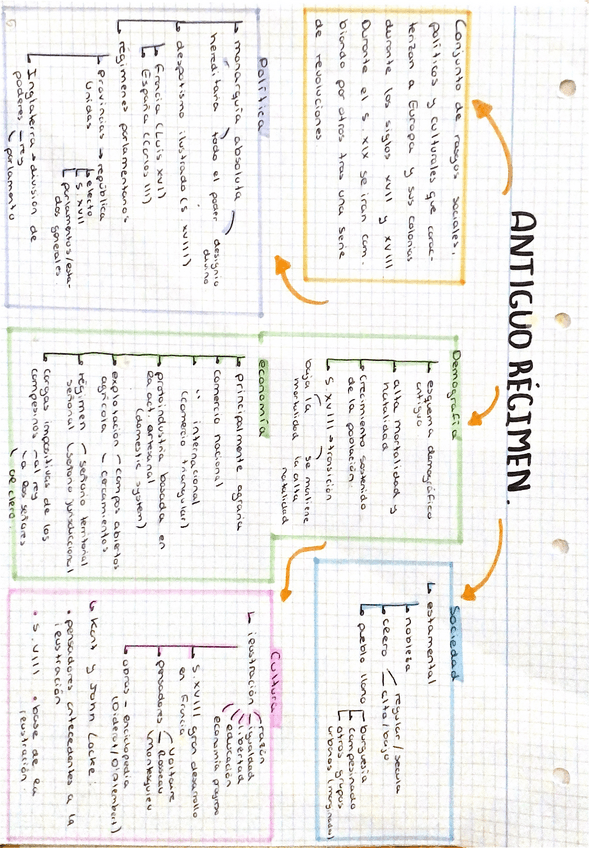 ANTIGUO RÉGIMEN.
Conjunto de rasgos sociales,
políticos y culturales que carac-
terizan a Europa y sus colonias
durante los siglos XVII y XVIII
Durante el S. XIX se iran cam-
biando por otros tras una serie
de revoluciones
Política
monarquía absoluta designio divino
hereditaria todo el poder
despotismo ilustrado (S XVIII)
Francia (Luis XVI)
España (Carlos III)
régimenes parlamentarios
Provincias Unidas → república
electo
S. XVII
parlamentos/esta-
dos generales
Inglaterra → división de
poderes - rey
parlamento
Demografía
esquema demográfico
antiguo
alta mortalidad y
natalidad
crecimiento sostenido
de la población
S XVIII → transición
baja la mortalidad
se mantiene la alta natalidad
economía
principalmente agraria
comercio nacional
" internacional
(comercio triangular)
protoindustria basada en
la act. artesanal
(domestic system)
explotación agrícola - campos abiertos
- cercamientos
régimen señorial señorío territorial
señorío jurisdiccional
cargas impositivas de los
campesinos - al rey
- a los señores
- al clero
Sociedad
estamental
nobleza
clero regular/secular
alto/bajo
pueblo llano burguesía
campesinado
otros grupos
urbanos (marginados)
Cultura
ilustración razón
igualdad
libertad
educación
economía progreso
S. XVIII gran desarrollo
en Francia
pensadores Voltaire
Rosseau
Montesquieu
obras - enciclopedia
(Diderot/D'Alembert)
Kant y John Locke
• pensadores antecedentes a la
ilustración
• S. VIII • base de la
ilustración